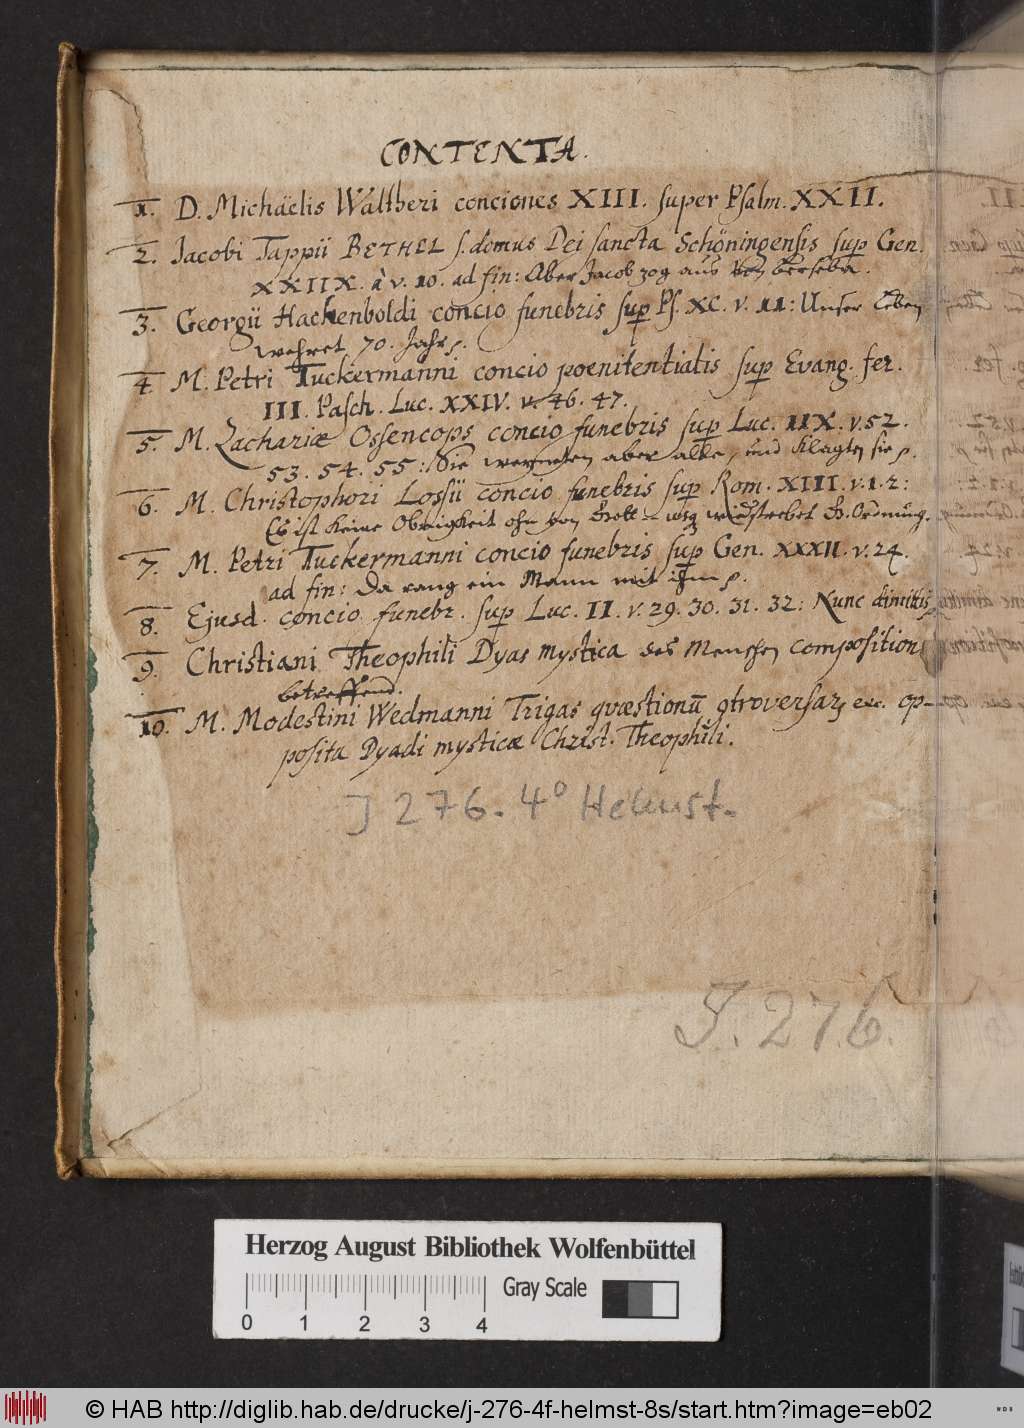 CONTENTA.
1. D. Michäelis Waltheri conciones XIII. super Psalm. XXII.
2. Jacobi Tappii BETHEL s. domus Dei sancta Schöningensis sup Gen.
XXIIX. à v. 10. ad fin: Aber Jacob zog aus von Berseba.
3. Georgii Hackenboldi concio funebris sup Ps. XC. v. 11: Unser Leben
wehret 70. Jahr
4. M. Petri Tuckermanni concio poenitentialis sup Evang. fer.
III. Pasch. Luc. XXIV. v. 46. 47.
5. M. Zachariæ Ossencops concio funebris sup Luc. IIX. v. 52.
53. 54. 55: Sie weyneten aber alle, und klagten sie
6. M. Christophori Lossii concio funebris sup Rom. XIII. v. 1. 2:
Es ist keine Obrigkeit ohn von Gott widstrebet G. Ordnung.
7. M. Petri Tuckermanni concio funebris sup Gen. XXXII. v. 24.
ad fin: Da rang ein Mann mit ihm
8. Ejusd. concio funebr. sup Luc. II. v. 29. 30. 31. 32: Nunc dimittis
9. Christiani Theophili Dyas mystica des Menschen composition
betreffend.
10. M. Modestini Wedmanni Trigas quæstionū etc. op-
posita Dyadi mysticæ Christ. Theophili.
J 276. 4° Helmst.
J. 276.
Herzog August Bibliothek Wolfenbüttel
0 1 2 3 4 Gray Scale
© HAB http://diglib.hab.de/drucke/j-276-4f-helmst-8s/start.htm?image=eb02